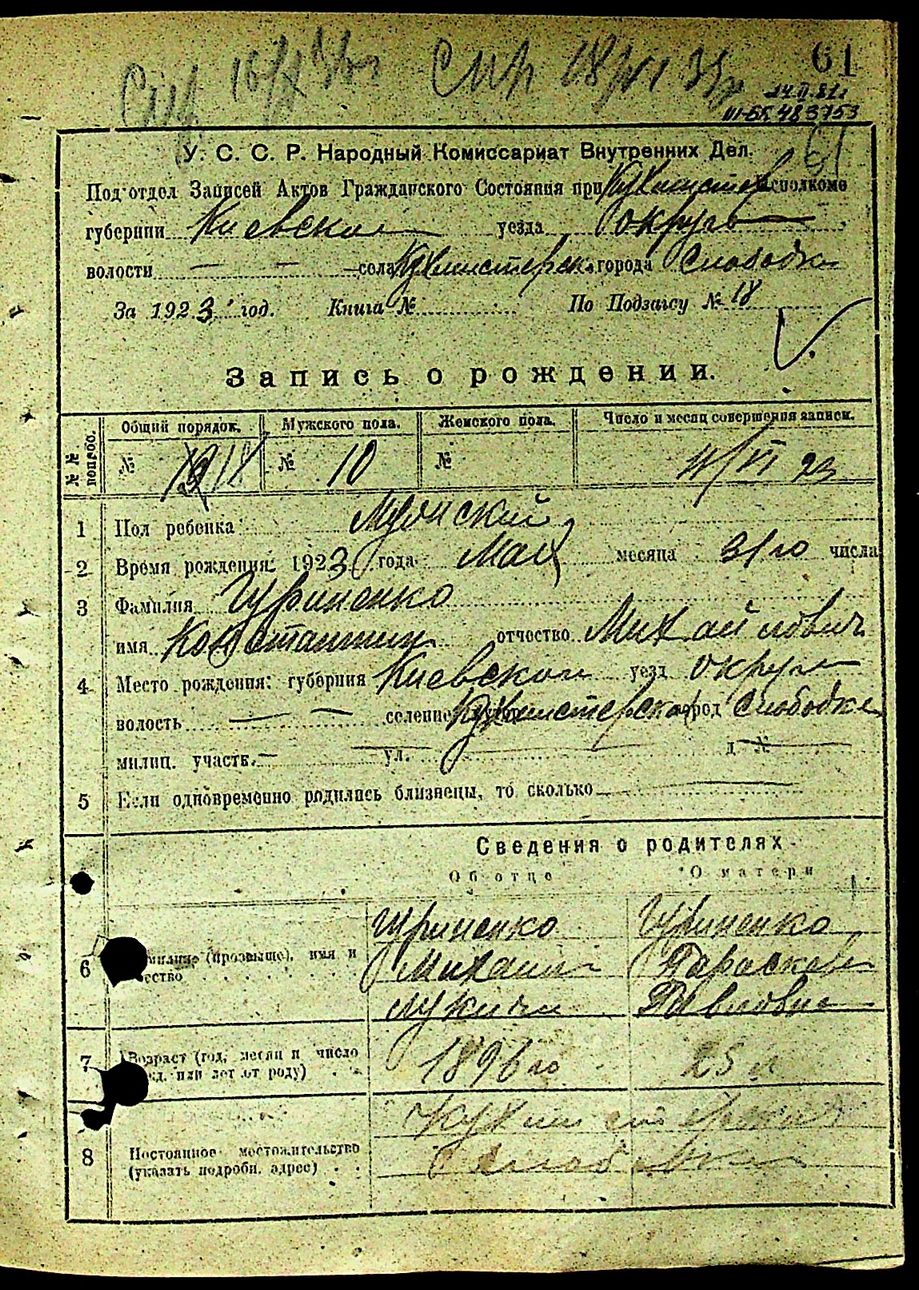 61
24.II.81г
III-БК 483753
61
У. С. С. Р. Народный Комиссариат Внутренних Дел.
Подотдел Записей Актов Гражданского Состояния при Кухмистер Исполкоме
губернии Киевской уезда округ
волости — — села Кухмистерск. города Слободки
За 1923 год. Книга № По Подзагсу № 18
Запись о рождении.
№№ поряб. Общий порядок. Мужского пола. Женского пола. Число и месяц совершения записи.
№ 18 № 10 № 4/VI 23
1 Пол ребенка Мужский
2 Время рождения: 1923 года Мая месяца 31го числа
3 Фамилия Гуриненко
имя Константин отчество Михайлович
4 Место рождения: губерния Киевской уезд округа
волость — — селение Кухмистерская город Слободка
милиц. участк. — ул. — д № —
5 Если одновременно родились близнецы, то сколько —
Сведения о родителях
Об отце О матери
6 Фамилие (прозвище), имя и отчество
Гуриненко Гуриненко
Михаил Параскева
Лукич Павловна
7 Возраст (год, месяц и число рожд. или лет от роду) 1896 го 25 л
8 Постоянное местожительство (указать подробн. адрес)
Кухмистерская
Слободка